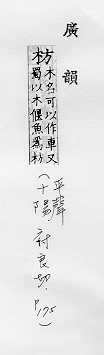 廣韻
枋
木名可以作車又
蜀以木偃魚為枋
(平聲
十陽
府良切,
P.175)